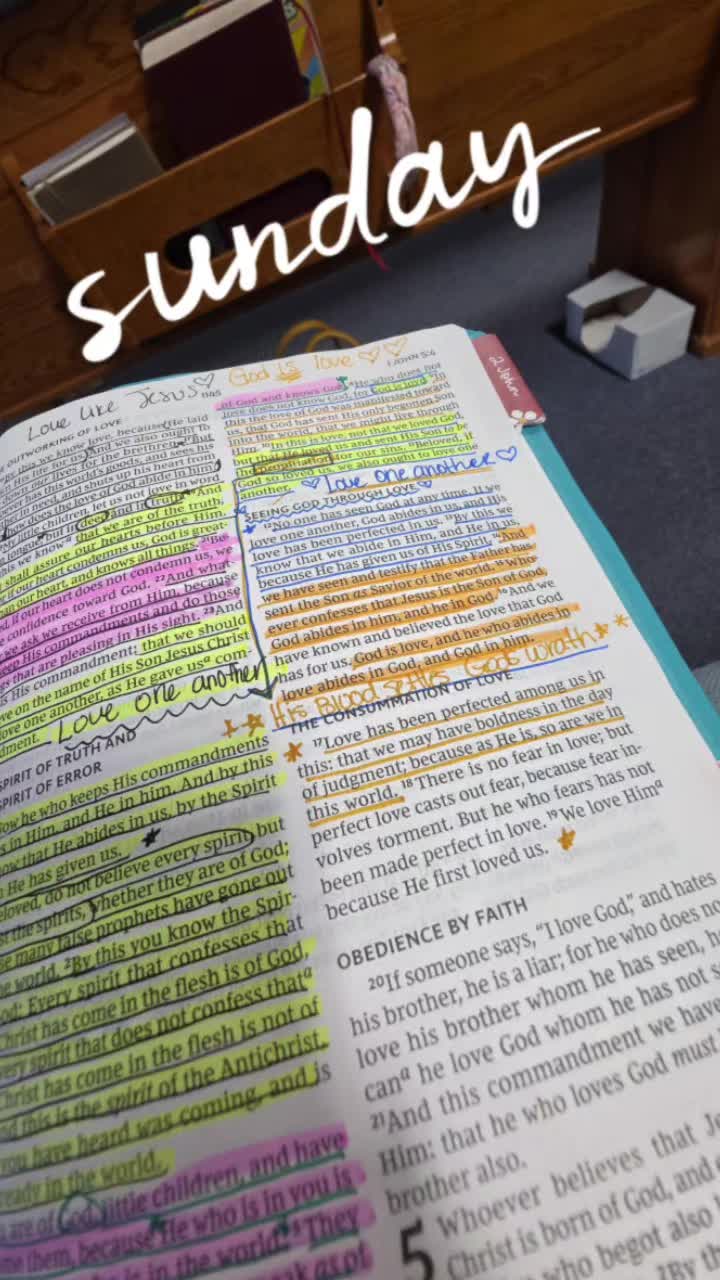 sunday
Love like Jesus
God is love
1 JOHN 5:6
2 John
OUTWORKING OF LOVE
this we know love, because He laid
His life for us. And we also ought to
down our lives for the brethren. 17But
has this world's goods, and sees his
in need, and shuts up his heart from
how does the love of God abide in him?
little children, let us not love in word
in tongue, but in deed and in truth. 19And
this we know that we are of the truth,
shall assure our hearts before Him.
if our heart condemns us, God is great-
than our heart, and knows all things. 21Be-
if our heart does not condemn us, we
confidence toward God. 22And what-
we ask we receive from Him, because
keep His commandments and do those
that are pleasing in His sight. 23And
is His commandment: that we should
on the name of His Son Jesus Christ
love one another, as He gave usa com-
dment.
Love one another
SPIRIT OF TRUTH AND
SPIRIT OF ERROR
he who keeps His commandments
in Him, and He in him. And by this
know that He abides in us, by the Spirit
He has given us.
do not believe every spirit, but
the spirits, whether they are of God;
many false prophets have gone out
the world. 2By this you know the Spir-
God: Every spirit that confesses that
Christ has come in the flesh is of God,
every spirit that does not confess thata
Christ has come in the flesh is not of
this is the spirit of the Antichrist,
you have heard was coming, and is
ready in the world.
are of God, little children, and have
them, because He who is in you is
in the world. 5They
speak as of
of God and knows God. 8He who does not
love does not know God, for God is love. 9In
this the love of God was manifested toward
us, that God has sent His only begotten Son
into the world, that we might live through
Him. 10In this is love, not that we loved God,
but that He loved us and sent His Son to be
the propitiation for our sins. 11Beloved, if
God so loved us, we also ought to love one
another.
Love one another
SEEING GOD THROUGH LOVE
12No one has seen God at any time. If we
love one another, God abides in us, and His
love has been perfected in us. 13By this we
know that we abide in Him, and He in us,
because He has given us of His Spirit. 14And
we have seen and testify that the Father has
sent the Son as Savior of the world. 15Who-
ever confesses that Jesus is the Son of God,
God abides in him, and he in God. 16And we
have known and believed the love that God
has for us. God is love, and he who abides in
love abides in God, and God in him.
His Blood settles God's wrath
THE CONSUMMATION OF LOVE
17Love has been perfected among us in
this: that we may have boldness in the day
of judgment; because as He is, so are we in
this world. 18There is no fear in love; but
perfect love casts out fear, because fear in-
volves torment. But he who fears has not
been made perfect in love. 19We love Hima
because He first loved us.
OBEDIENCE BY FAITH
20If someone says, "I love God," and hates
his brother, he is a liar; for he who does no
love his brother whom he has seen, h
cana he love God whom he has not s
21And this commandment we have
Him: that he who loves God must
brother also.
5 Whoever believes that Je
Christ is born of God, and
who begot also
2By th